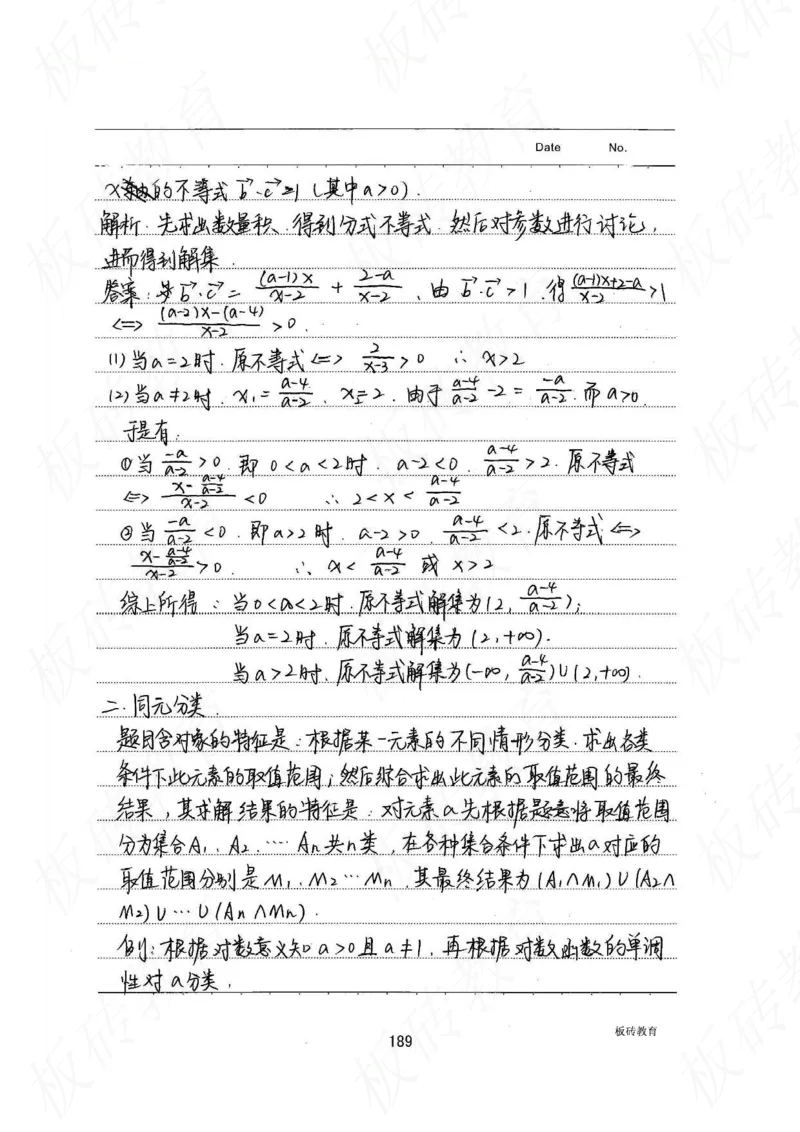 Date No.
x的不等式 b→·c→>1 (其中a>0).
解析:先求出数量积、得到分式不等式.然后对参数进行讨论,
进而得到解集.
答案: b→·c→ = (a-1)x/(x-2) + (2-a)/(x-2) . 由 b→·c→>1 .得 ((a-1)x+2-a)/(x-2) >1
<=> ((a-2)x-(a-4))/(x-2) >0.
(1)当a=2时.原不等式<=> 2/(x-3) >0 ∴ x>2
(2)当a≠2时. x₁= (a-4)/(a-2) . x₂=2. 由于 (a-4)/(a-2) -2= -a/(a-2) .而a>0.
于是有:
①当 -a/(a-2) >0. 即 0<a<2时. a-2<0. (a-4)/(a-2) >2. 原不等式
<=> (x-(a-4)/(a-2))/(x-2) <0 ∴ 2<x< (a-4)/(a-2)
②当 -a/(a-2) <0.即a>2时. a-2>0. (a-4)/(a-2) <2.原不等式<=>
(x-(a-4)/(a-2))/(x-2) >0. ∴ x< (a-4)/(a-2) 或 x>2
综上所得:当0<a<2时.原不等式解集为(2, (a-4)/(a-2));
当a=2时.原不等式解集为(2,+∞).
当a>2时.原不等式解集为(-∞, (a-4)/(a-2))∪(2,+∞).
二.同元分类.
题目含对象的特征是:根据某一元素的不同情形分类.求出各类
条件下此元素的取值范围;然后综合求出此元素的取值范围的最终
结果,其求解结果的特征是:对元素a先根据题意将取值范围
分为集合A₁.A₂.…An共n类,在各种集合条件下求出a对应的
取值范围分别是M₁.M₂…Mn,其最终结果为(A₁∩M₁)∪(A₂∩
M₂)∪…∪(An∩Mn).
例:根据对数意义知a>0且a≠1.再根据对数函数的单调
性对a分类.
板砖教育
189